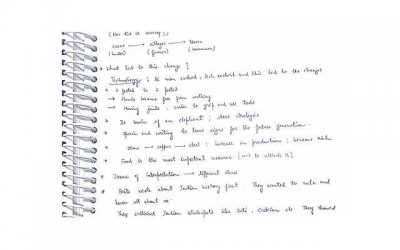 (How did we arrive?)
caves → villages → towns
(hunter) (farmer) (consumer)
* What led to this change?
Technology: As man evolved, tech evolved and this led to the changes
* 4 footed to 2 footed
→ brain for from walking
→ Moving joints, easier to grip and use tools
* brain of an elephant; more strategies
* Speech and writing to leave signs for the future generation.
* → copper → steel: increase in production: became rich
* Food is the most important resource
* Issues of interpretation → different views
* Brits wrote about Indian history first. They wanted to rule and
know all about us.
They criticized Indian like Sati, Casteism etc. They showed